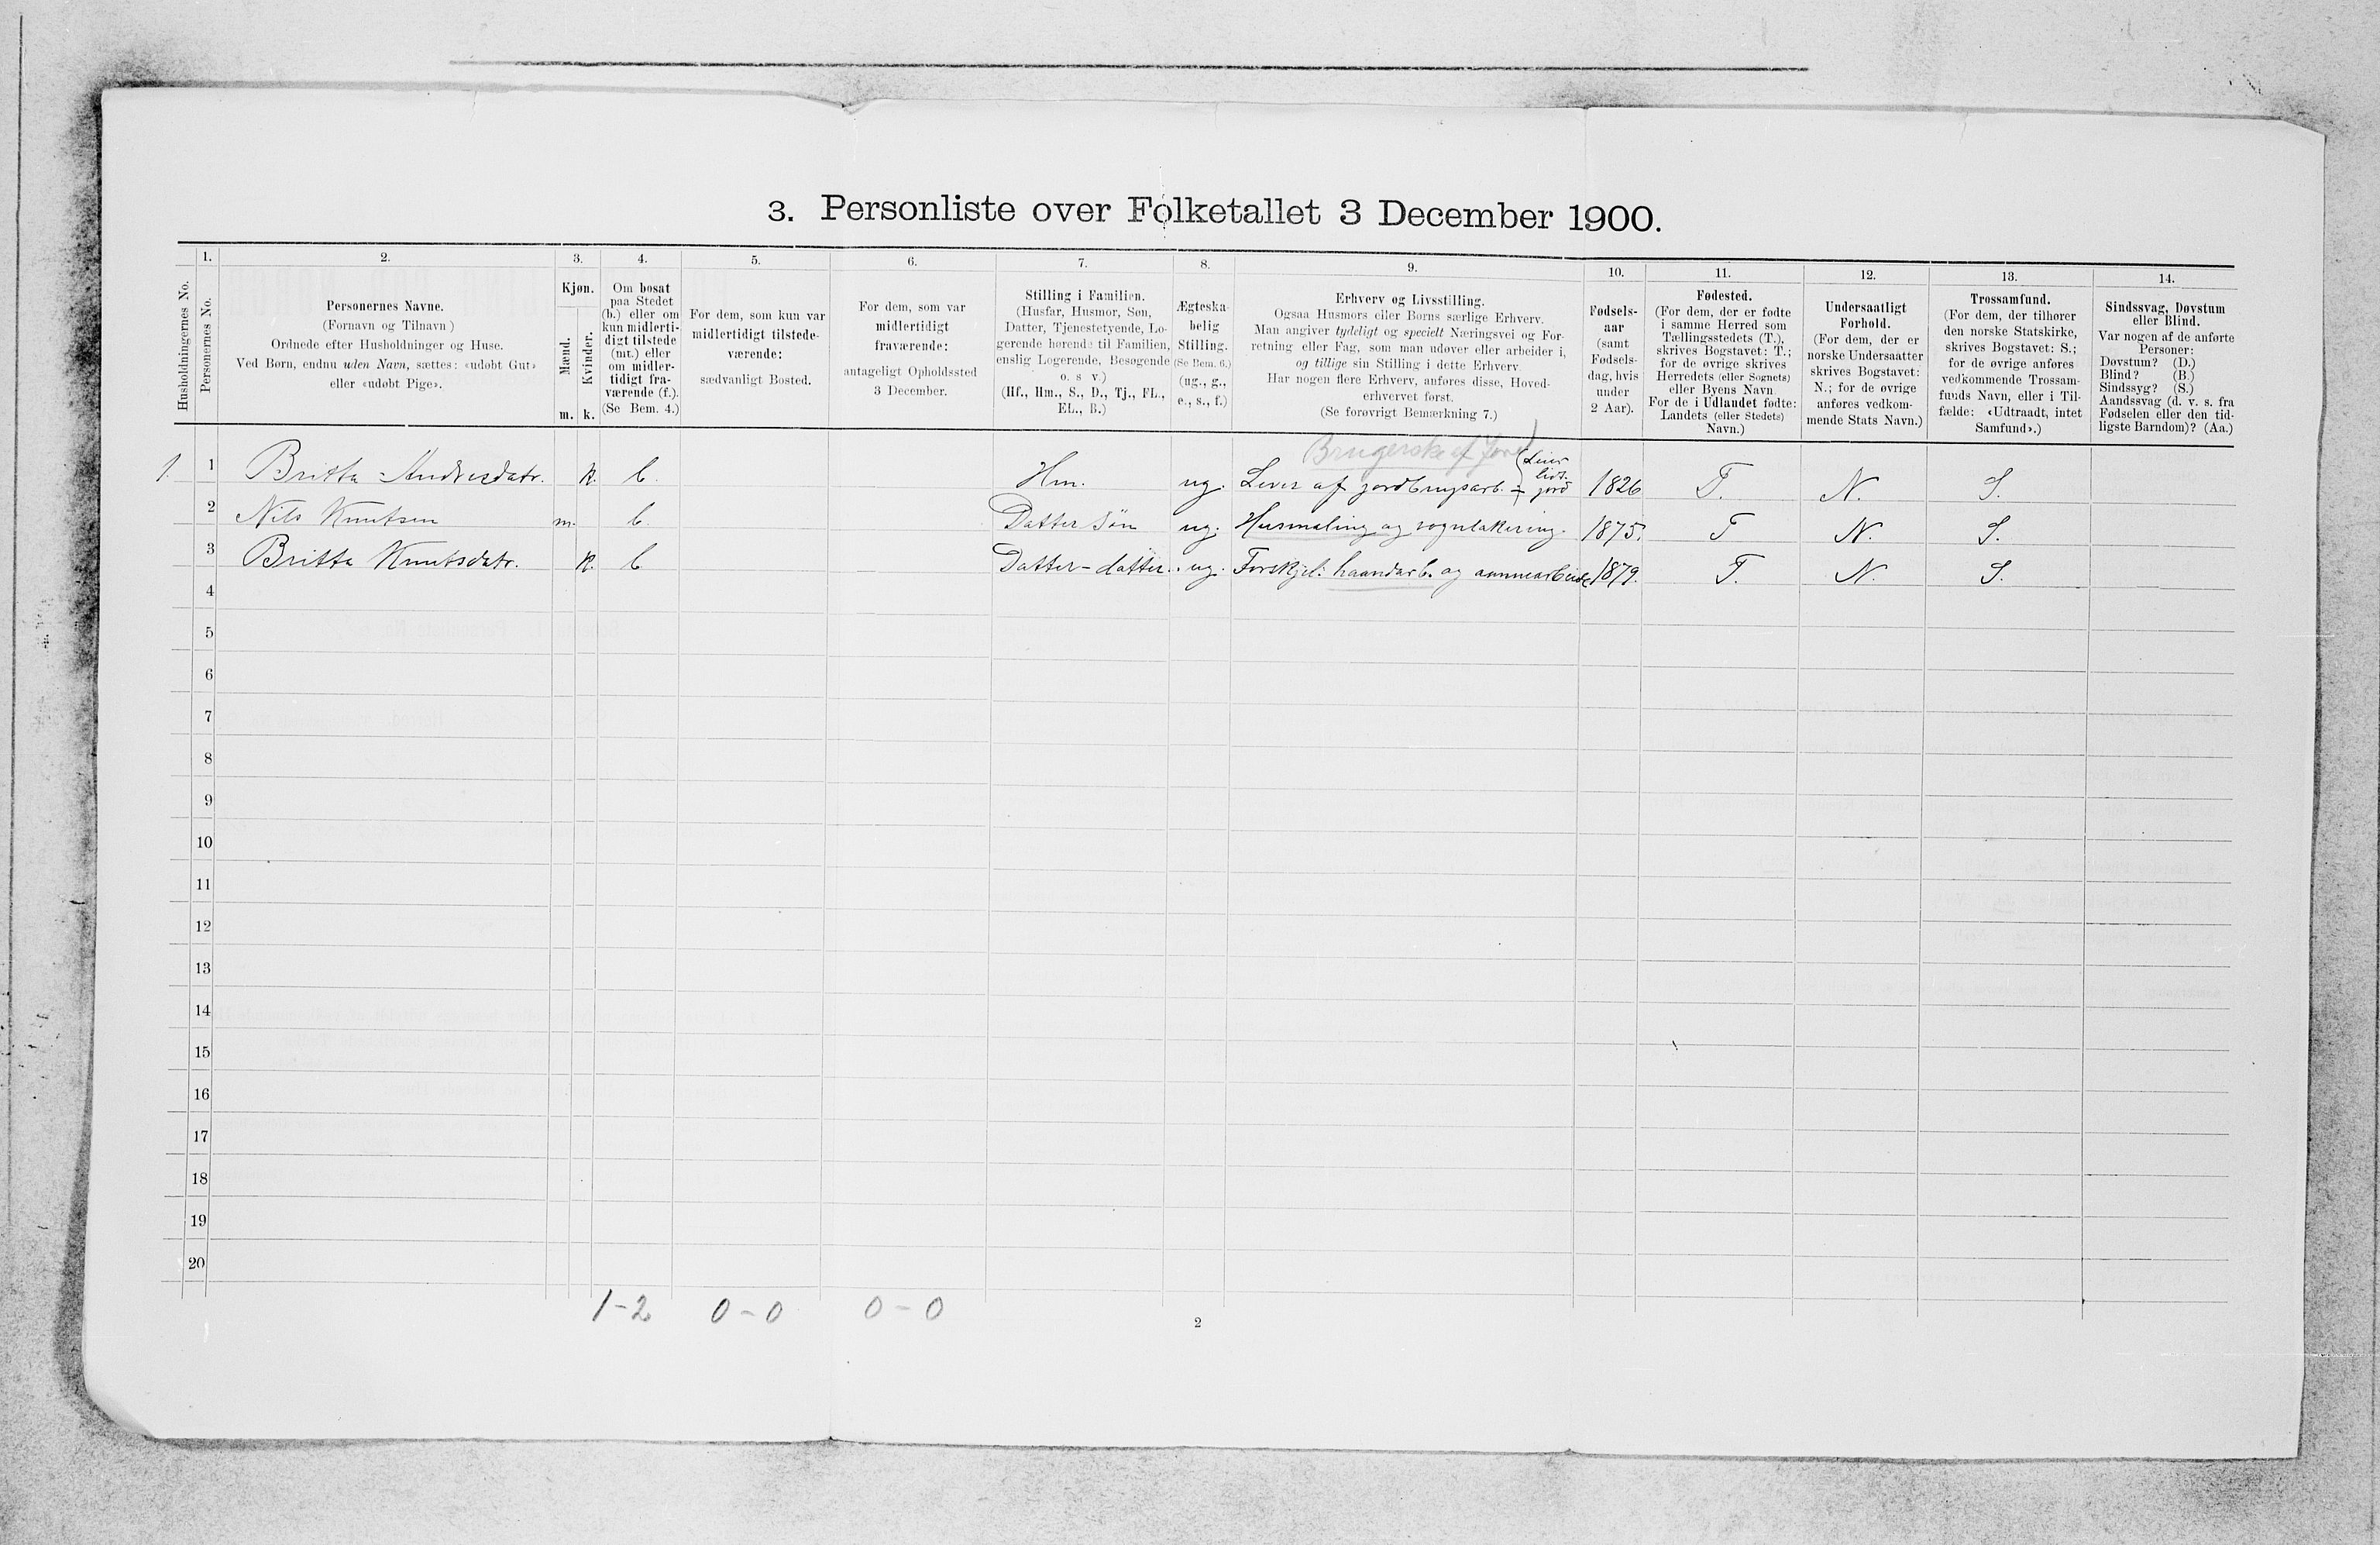 3. Personliste over Folketallet 3 December 1900.
Husholdningernes No.
1.
Personernes No.
2.
Personernes Navne.
(Fornavn og Tilnavn)
Ordnede efter Husholdninger og Huse.
Ved Børn, endnu uden Navn, sættes: «udøbt Gut»
eller «udøbt Pige».
3.
Kjøn.
Mænd.
Kvinder.
m. k.
4.
Om bosat
paa Stedet
(b.) eller om
kun midlerti-
digt tilstede
(mt.) eller
om midler-
tidigt fra-
værende (f.).
(Se Bem. 4.)
5.
For dem, som kun var
midlertidigt tilstede-
værende:
sædvanligt Bosted.
6.
For dem, som var
midlertidigt
fraværende:
antageligt Opholdssted
3 December.
7.
Stilling i Familien.
(Husfar, Husmor, Søn,
Datter, Tjenestetyende, Lo-
gerende hørende til Familien,
enslig Logerende, Besøgende
o. s v.)
(Hf., Hm., S., D., Tj., FL.,
EL., B.)
8.
Ægteska-
belig
Stilling.
(Se Bem. 6.)
(ug., g.,
e., s., f.)
9.
Erhverv og Livsstilling.
Ogsaa Husmors eller Børns særlige Erhverv.
Man angiver tydeligt og specielt Næringsvei og For-
retning eller Fag, som man udøver eller arbeider i,
og tillige sin Stilling i dette Erhverv.
Har nogen flere Erhverv, anføres disse, Hoved-
erhvervet først.
(Se forøvrigt Bemærkning 7.)
10.
Fødsels-
aar
(samt
Fødsels-
dag, hvis
under
2 Aar).
11.
Fødested.
(For dem, der er fødte
i samme Herred som
Tællingsstedets (T.),
skrives Bogstavet: T.;
for de øvrige skrives
Herredets (eller Sognets)
eller Byens Navn
For de i Udlandet fødte:
Landets (eller Stedets)
Navn.)
12.
Undersaatligt
Forhold.
(For dem, der er
norske Undersaatter
skrives Bogstavet:
N.; for de øvrige
anføres vedkom-
mende Stats Navn.)
13.
Trossamfund.
(For dem, der tilhører
den norske Statskirke,
skrives Bogstavet: S.;
for de øvrige anføres
vedkommende Trossam-
funds Navn, eller i Til-
fælde: «Udtraadt, intet
Samfund».)
14.
Sindssvag, Døvstum
eller Blind.
Var nogen af de anførte
Personer:
Døvstum? (D.)
Blind? (B.)
Sindssyg? (S.)
Aandssvag (d. v. s. fra
Fødselen eller den tid-
ligste Barndom)? (Aa.)
Brugerske af jord
(Leier
lidt
jord
1. 1 Britta Andersdatr. k. b. Hm. ug. Lever af jordbrugsarb. 1826 T. N. S.
2 Nils Knutsen m. b. Datter søn ug. Husmaling og vognlakering. 1875. T N. S.
3 Britta Knutsdatr. k. b Datter-datter. ug. Forskjel: haandarb. og 1879. T. N. S.
4
5
6
7
8
9
10
11
12
13
14
15
16
17
18
19
20
1-2 0-0 0-0
2